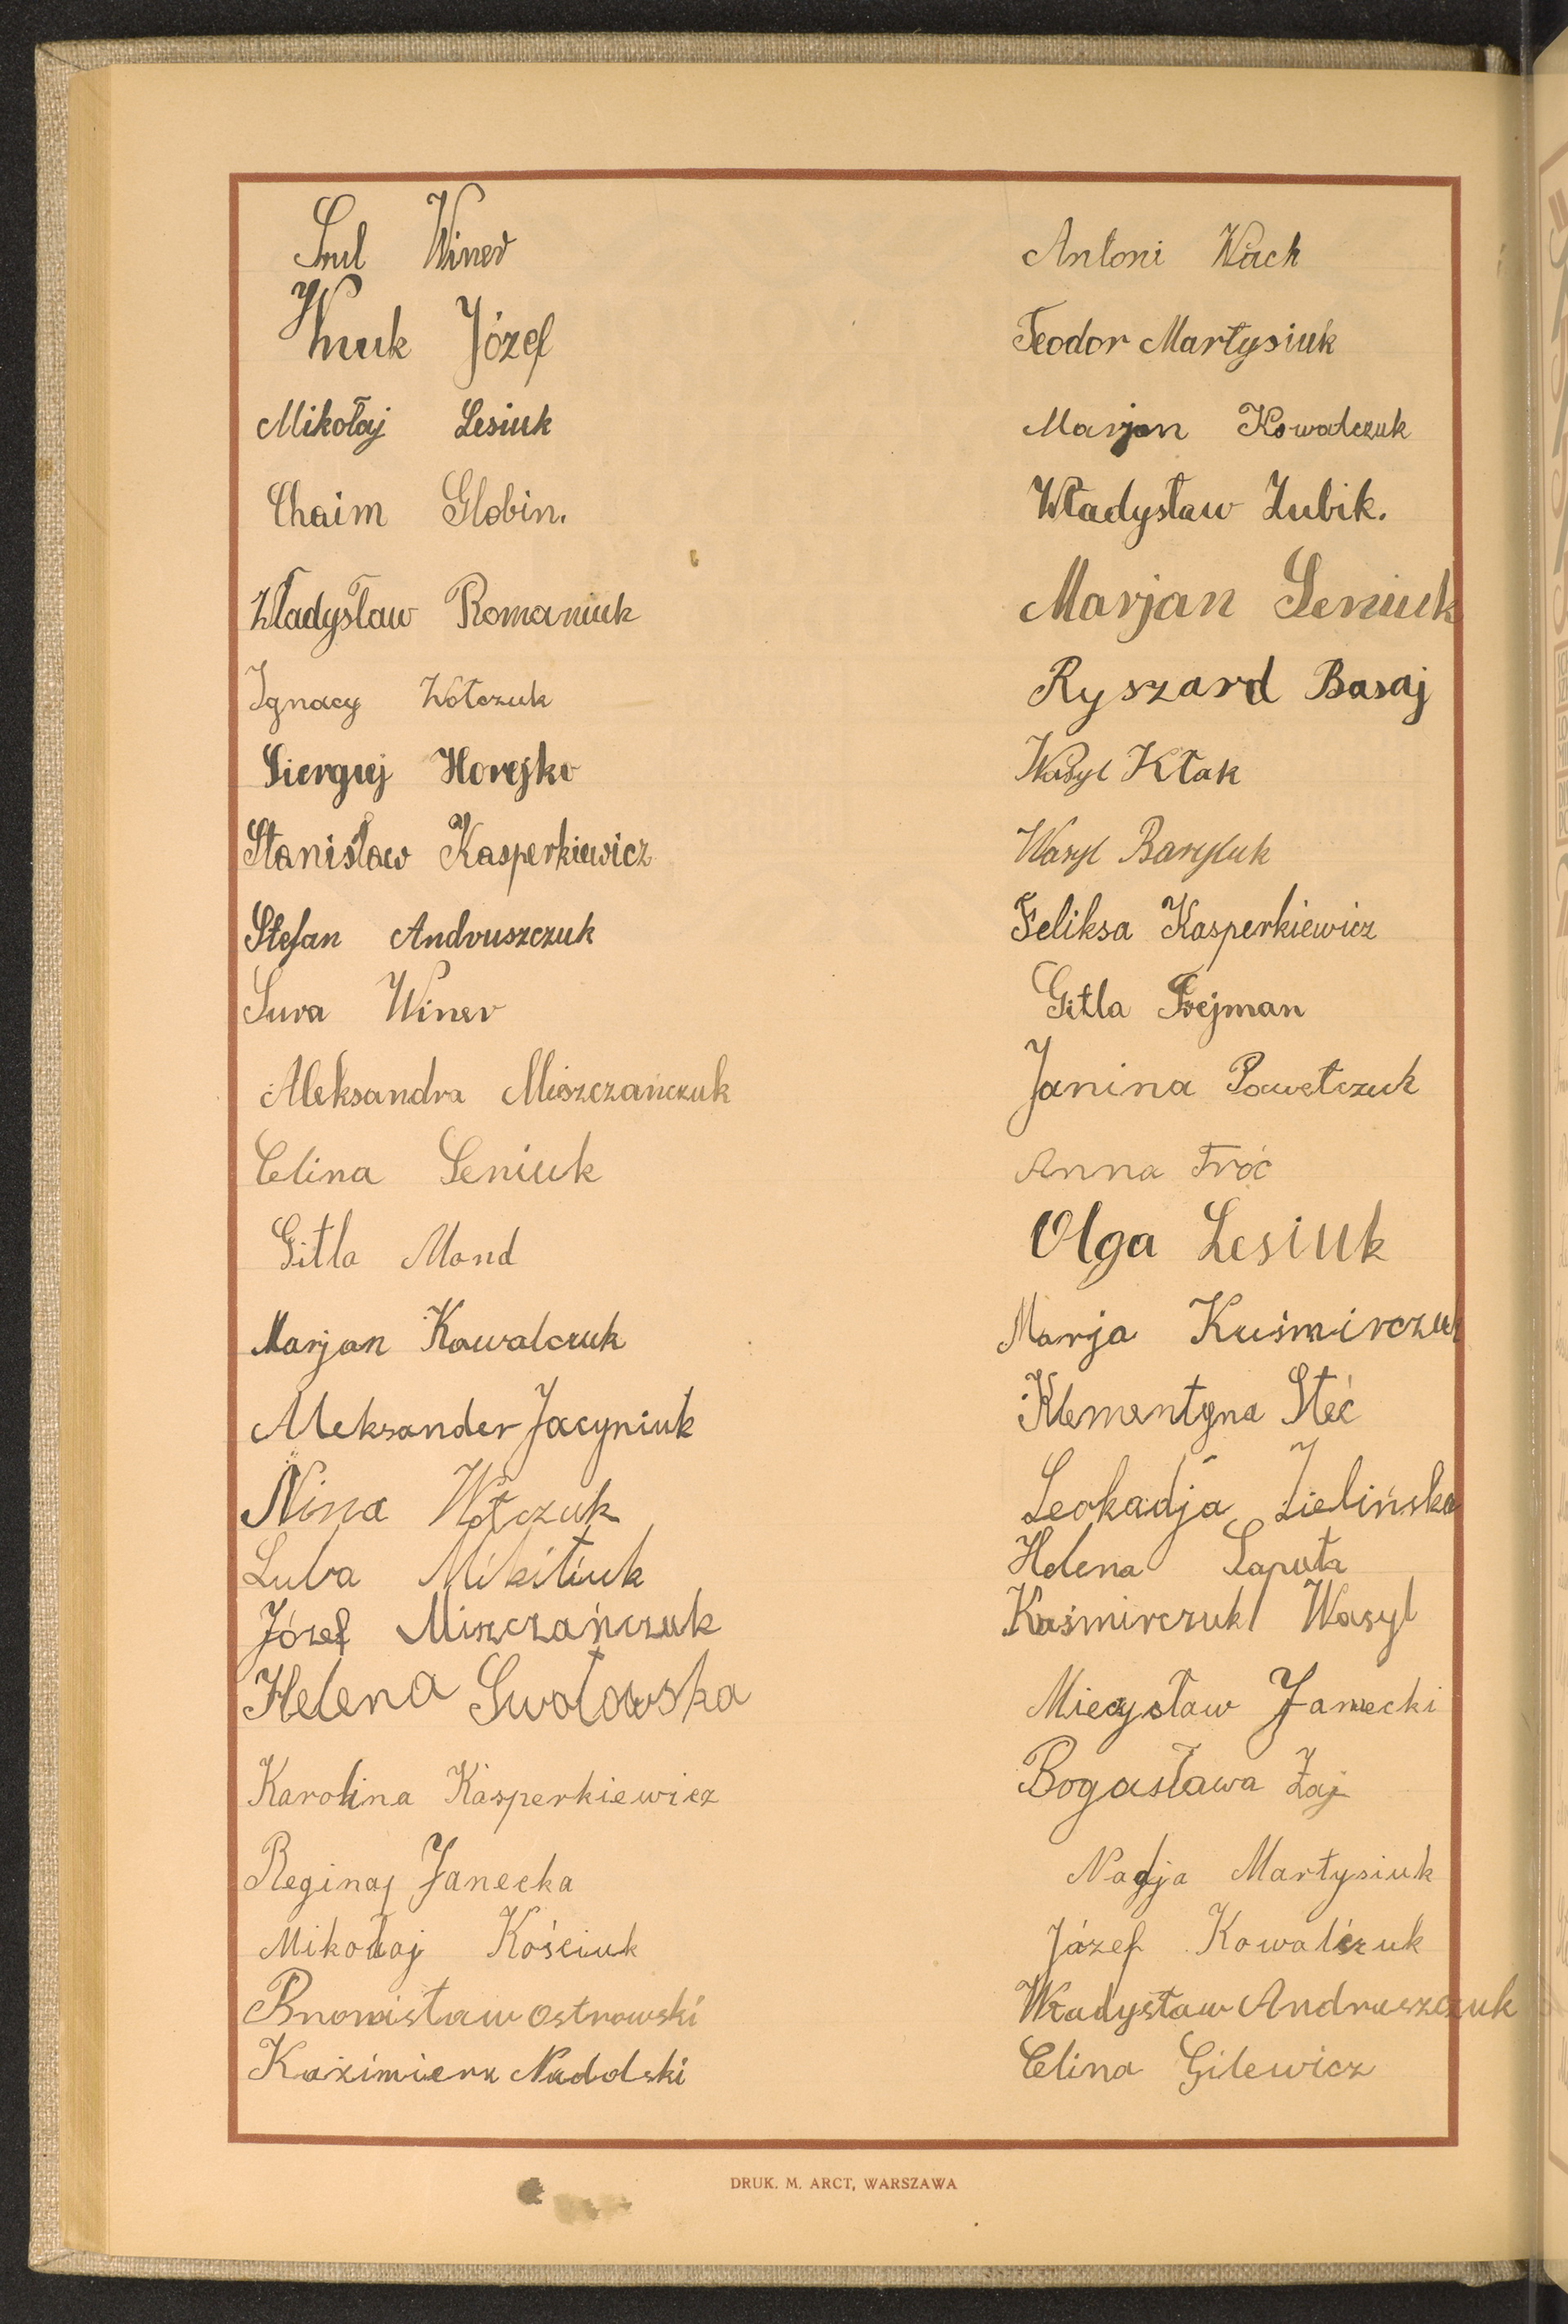 Srul Winer
Wnuk Józef
Mikołaj Lesiuk
Chaim Globin.
Władysław Romaniuk
Ignacy Wołczuk
Siergiej Horejko
Stanisław Kasperkiewicz
Stefan Andruszczuk
Sura Winer
Aleksandra Miszczańczuk
Celina Seniuk
Gitla Mand
Marjan Kowalczuk
Aleksander Jacyniuk
Nina Wołczuk
Luba Mikitiuk
Józef Miszczańczuk
Helena Swołowska
Karolina Kasperkiewicz
Regina Janecka
Mikołaj Kościuk
Bronisław Ostrowski
Kazimierz Nadolski
Antoni Wach
Teodor Martysiuk
Marjan Kowalczuk
Władysław Zubik.
Marjan Seniuk
Ryszard Basaj
Wasyl Kłak
Wasyl Baryluk
Feliksa Kasperkiewicz
Gitla Frejman
Janina Pawełczuk
Anna Tróć
Olga Lesiuk
Marja Kuśmirczuk
Klementyna Steć
Leokadja Zielińska
Helena Saputa
Kuśmirczuk Wasyl
Mieczysław Janecki
Bogusława Zaj
Nadja Martysiuk
Józef Kowalczuk
Władysław Andruszczuk
Celina Gilewicz
DRUK. M. ARCT, WARSZAWA